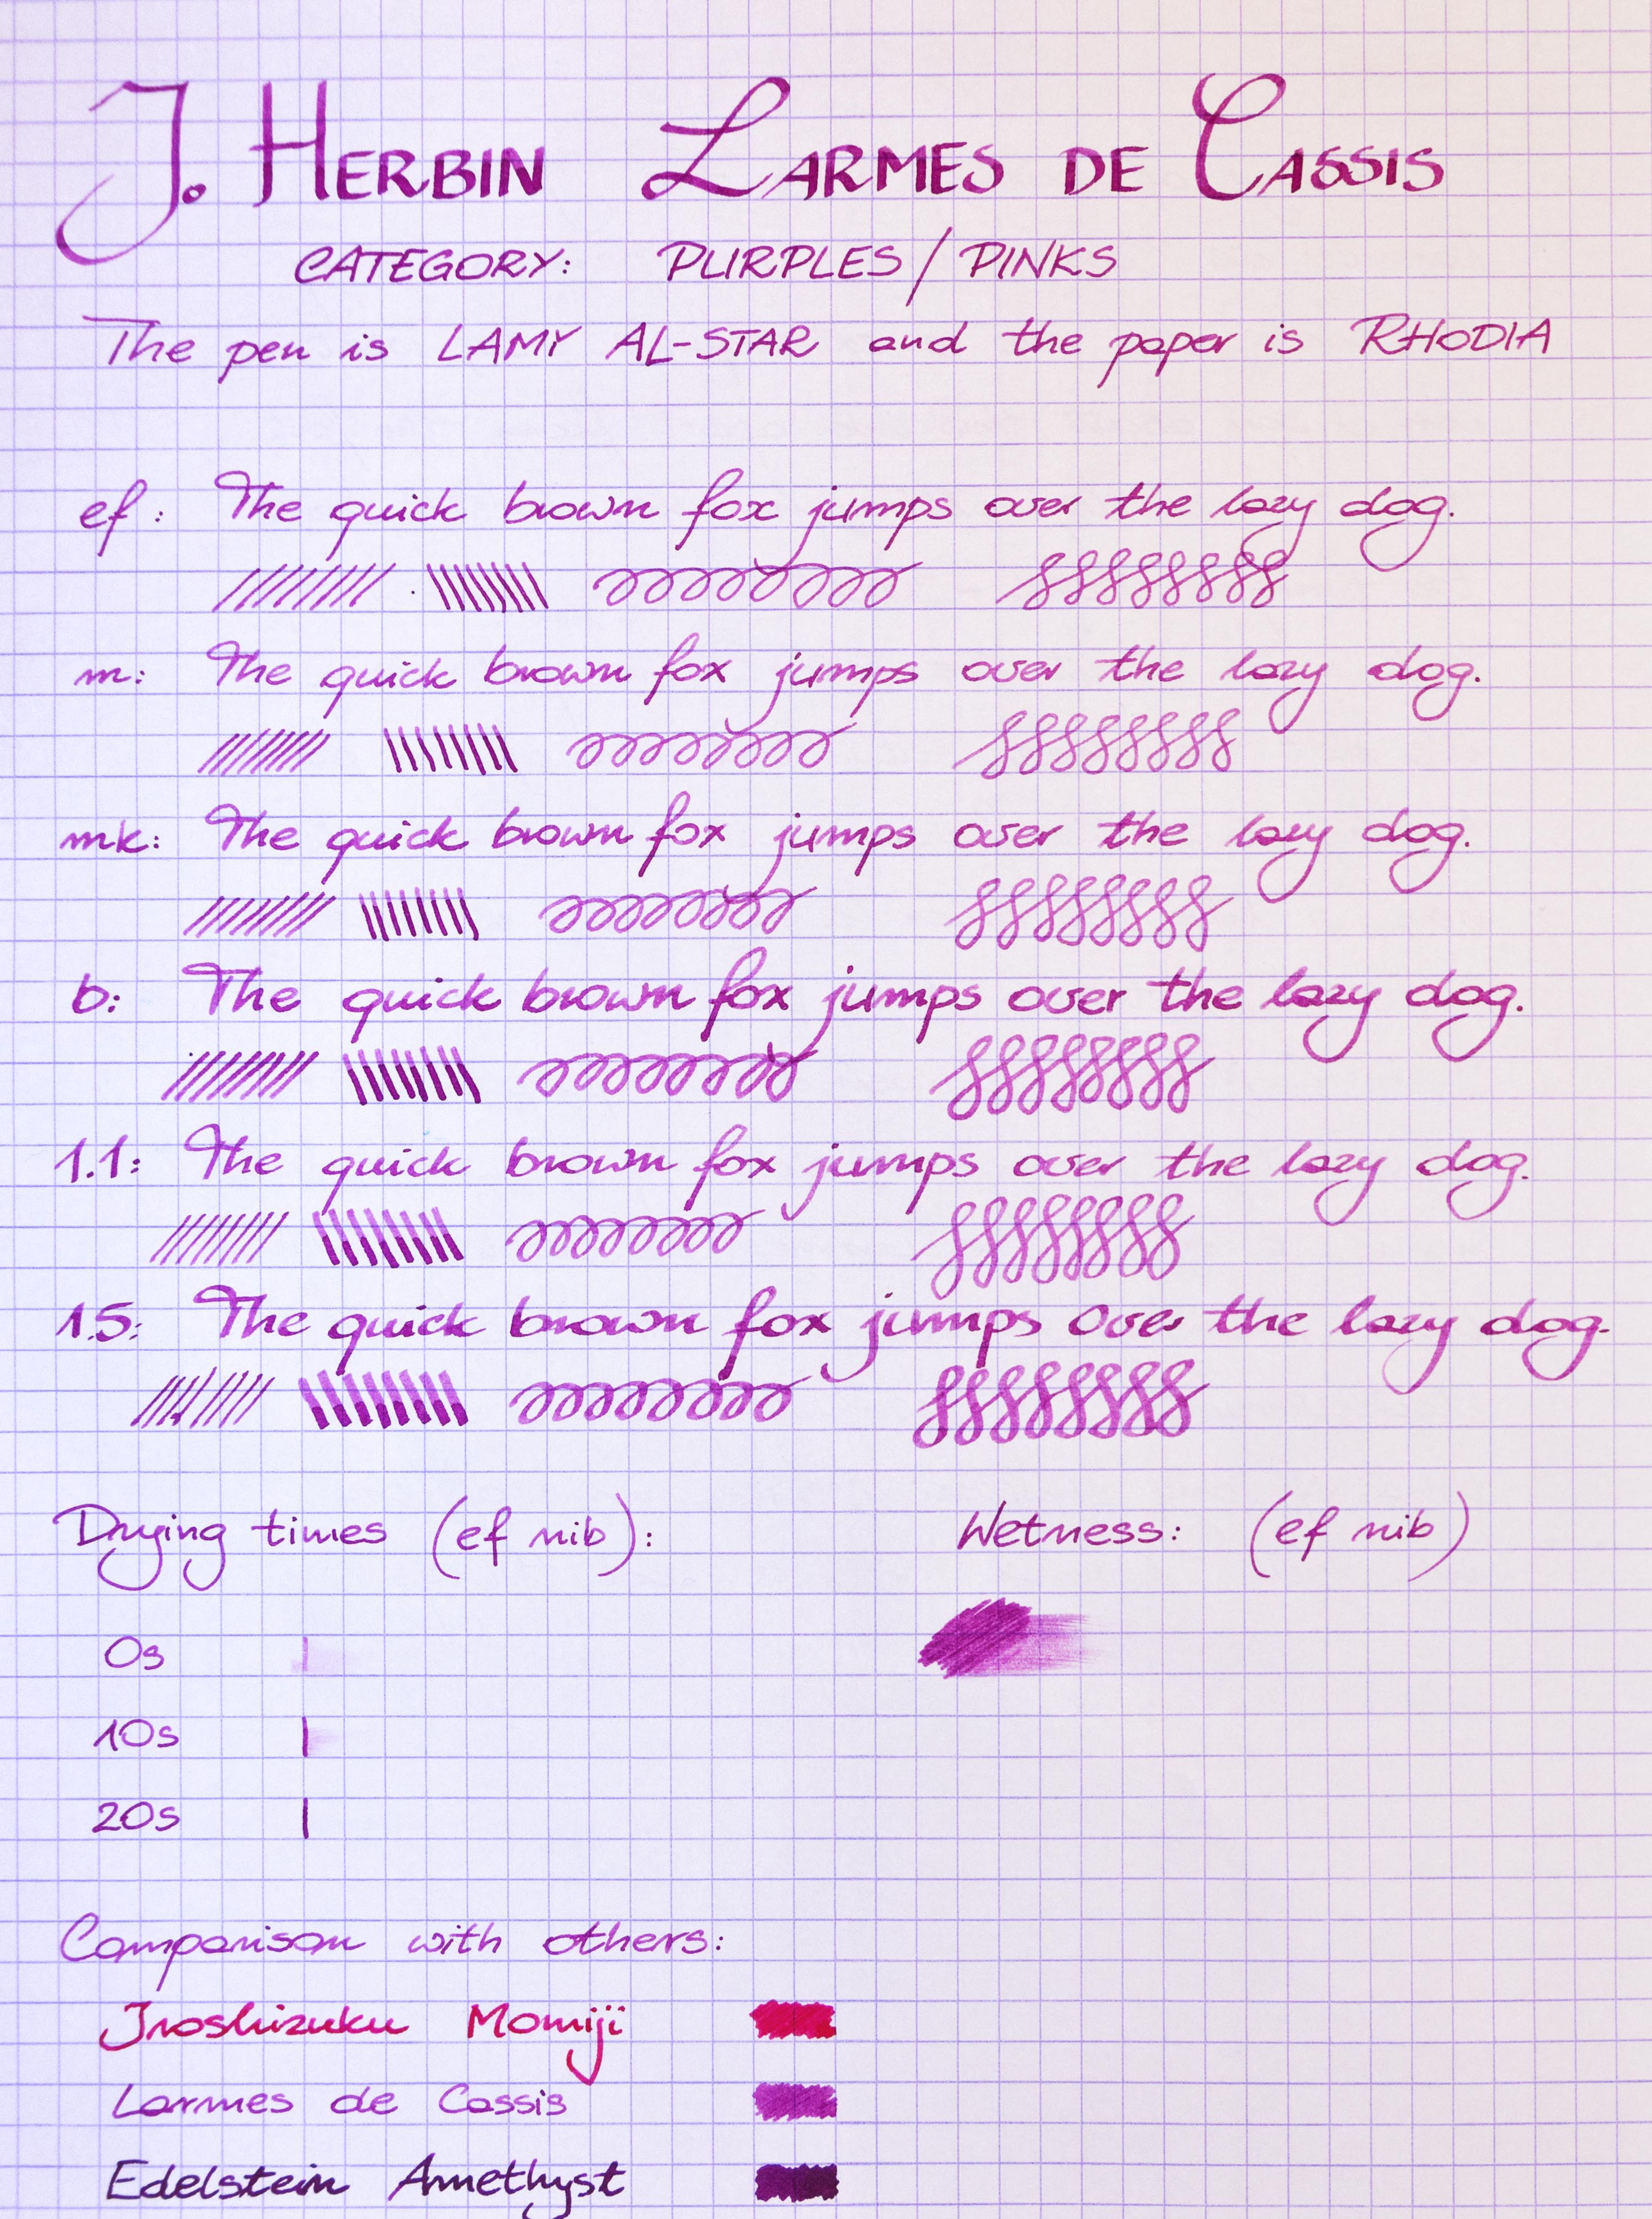 J. HERBIN LARMES DE CASSIS
CATEGORY: PURPLES/PINKS
The pen is LAMY AL-STAR and the paper is RHODIA
ef: The quick brown fox jumps over the lazy dog.
m: The quick brown fox jumps over the lazy dog.
mk: The quick brown fox jumps over the lazy dog.
b: The quick brown fox jumps over the lazy dog.
1.1: The quick brown fox jumps over the lazy dog.
1.5: The quick brown fox jumps over the lazy dog.
Drying times (ef nib): Wetness: (ef nib)
0s
10s
20s
Comparison with others:
Iroshizuku Momiji
Larmes de Cassis
Edelstein Amethyst